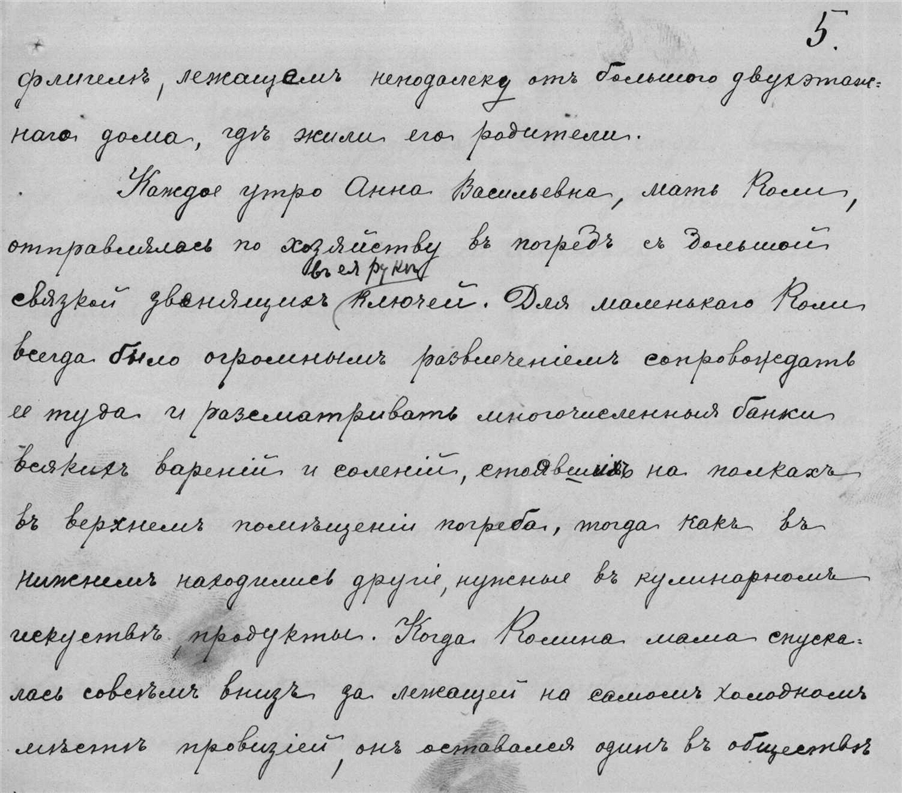 5.
флигелѣ, лежащемъ неподалеку отъ большого двухэтаж=
наго дома, гдѣ жили его родители.
Каждое утро Анна Васильевна, мать Коли,
отправлялась по хозяйству въ погребъ съ большой
въ ея рукѣ
связкой звенящихъ ключей. Для маленькаго Коли
всегда было огромнымъ развлеченіемъ сопровождать
ее туда и разсматривать многочисленныя банки
всякихъ вареній и соленій, стоявшихъ на полкахъ
въ верхнемъ помѣщеніи погреба, тогда какъ въ
нижнемъ находились другіе, нужные въ кулинарномъ
искуствѣ, продукты. Когда Колина мама спуска=
лась совсѣмъ внизъ за лежащей на самомъ холодномъ
мѣстѣ провизіей, онъ оставался одинъ въ обществѣ